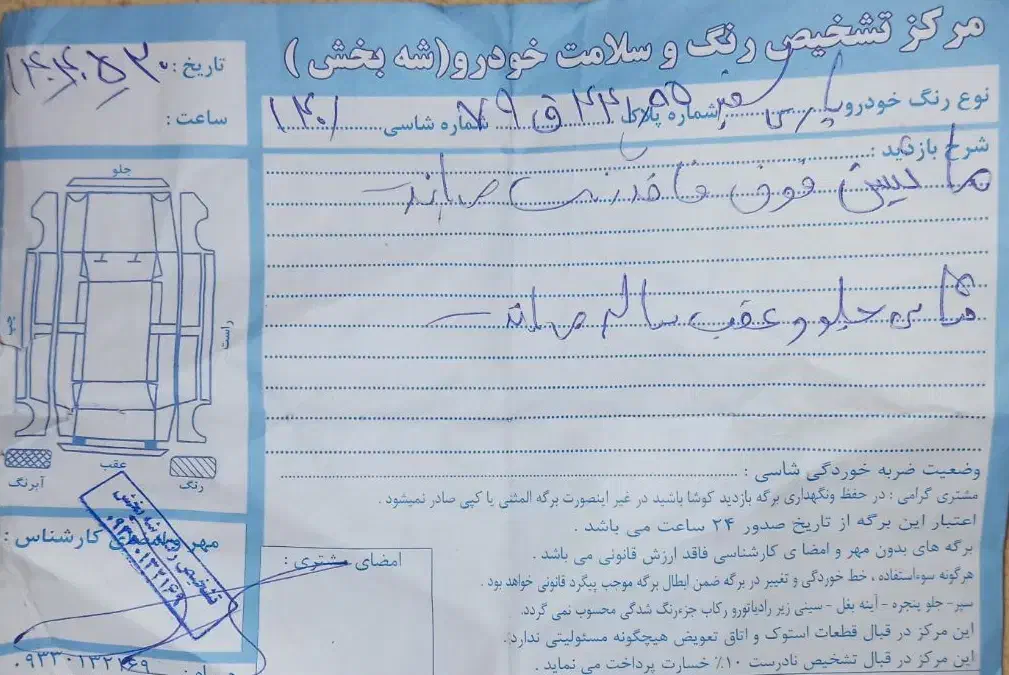 مرکز تشخیص رنگ و سلامت خودرو(شه بخش )
تاریخ :
ساعت :
نوع رنگ خودرو پارس سفید شماره پلاک ۵۵ ۲۲ ق ۷۹ شماره شاسی ۱۴۰۱
شرح بازدید :
ماشین فوق فاقد رنگ می باشد
شاسی جلو و عقب سالم می باشد
جلو
راست
چپ
عقب
آبرنگ
رنگ
وضعیت ضربه خوردگی شاسی :
مشتری گرامی : در حفظ ونگهداری برگه بازدید کوشا باشید در غیر اینصورت برگه المثنی یا کپی صادر نمیشود .
اعتبار این برگه از تاریخ صدور ۲۴ ساعت می باشد .
برگه های بدون مهر و امضا ی کارشناسی فاقد ارزش قانونی می باشد .
هرگونه سوءاستفاده ، خط خوردگی و تغییر در برگه ضمن ابطال برگه موجب پیگرد قانونی خواهد بود .
سپر- جلو پنجره - آینه بغل - سینی زیر رادیاتورو رکاب جزءرنگ شدگی محسوب نمی گردد.
این مرکز در قبال قطعات استوک و اتاق تعویض هیچگونه مسئولیتی ندارد.
این مرکز در قبال تشخیص نادرست ۱۰٪ خسارت پرداخت می نماید .
مهر و امضای کارشناس :
تشخیص رنگ شه بخش
امضای مشتری :
۰۹۳۳۰۱۳۲۱۶۹